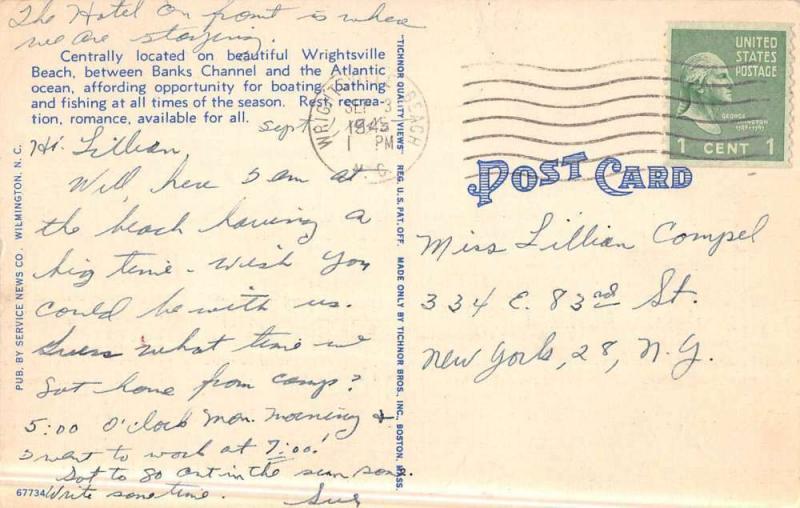 The Hotel on front is where
we are staying.
Centrally located on beautiful Wrightsville
Beach, between Banks Channel and the Atlantic
ocean, affording opportunity for boating, bathing
and fishing at all times of the season. Rest, recrea-
tion, romance, available for all.
Sept
Hi Lillian
Well, here I am at
the beach having a
big time. Wish you
could be with us.
Guess what time we
got home from camp?
5:00 O'clock Mon. morning &
I went to work at 7:00!
Got to go out in the sun now.
Write sometime.
Sue
67734
PUB. BY SERVICE NEWS CO. WILMINGTON, N. C.
"TICHNOR QUALITY VIEWS" REG. U. S. PAT. OFF. MADE ONLY BY TICHNOR BROS., INC., BOSTON, MASS.
WRIGHTSVILLE BEACH
SEP 3
1945
1 PM
N. C.
UNITED
STATES
POSTAGE
GEORGE
WASHINGTON
1789-1797
1 CENT 1
POST CARD
Miss Lillian Compel
334 E. 83rd St.
New York, 28, N.Y.